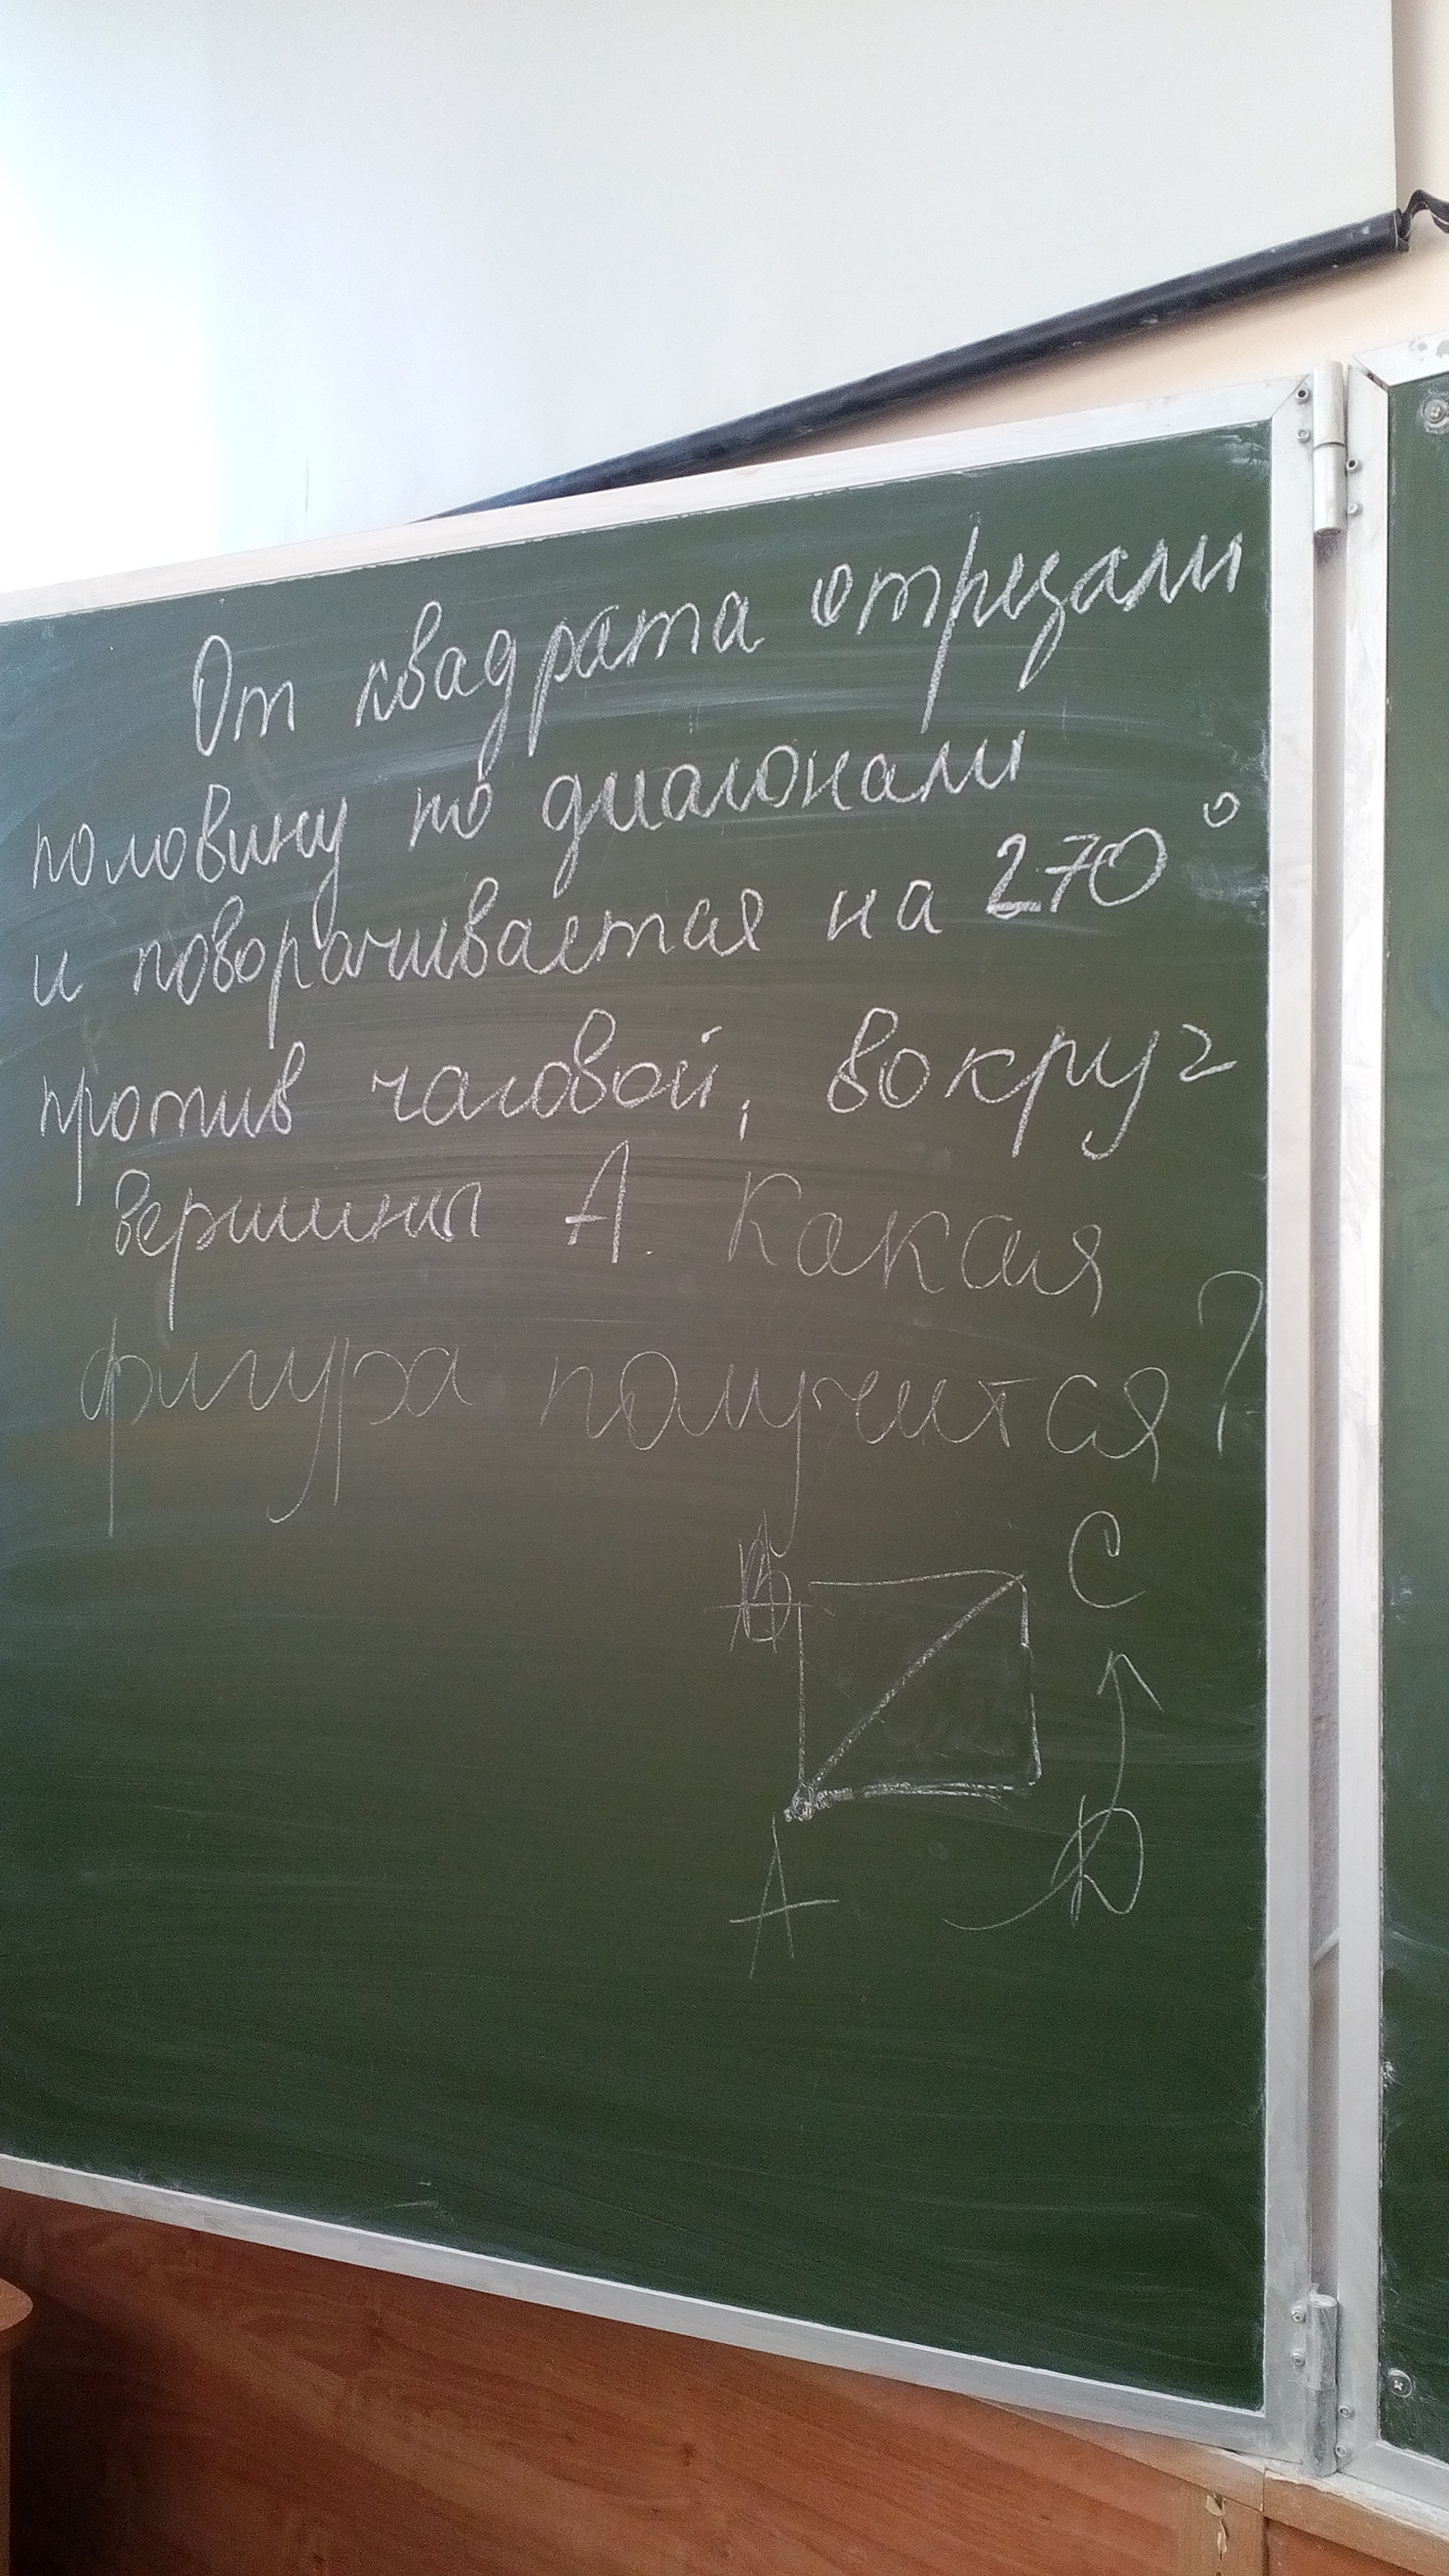 От квадрата отрезали
половину по диагонали
и поворачивается на 270°
против часовой, вокруг
вершины А. Какая
фигура получится?
C
A
D